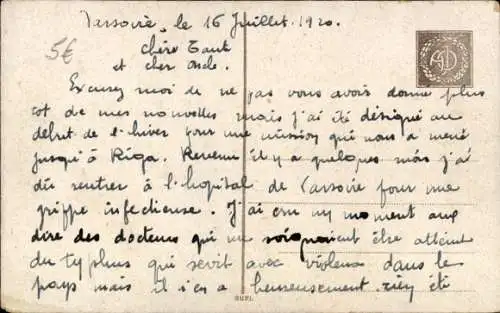 Varsovie, le 16 Juillet 1920.
5€
Chère Tante
et cher Oncle.
Excusez moi de ne pas vous avoir donné plus
tot de mes nouvelles mais j'ai été désigné au
début de l'hiver pour une mission qui nous a mené
jusqu'à Riga. Revenu il y a quelques mois j'ai
dû rentrer à l'hopital de Varsovie pour une
grippe infectieuse. J'ai cru un moment aux
dire des docteurs qui me soignaient être atteint
du typhus qui sevit avec violence dans le
pays mais il n'en a heureusement rien été